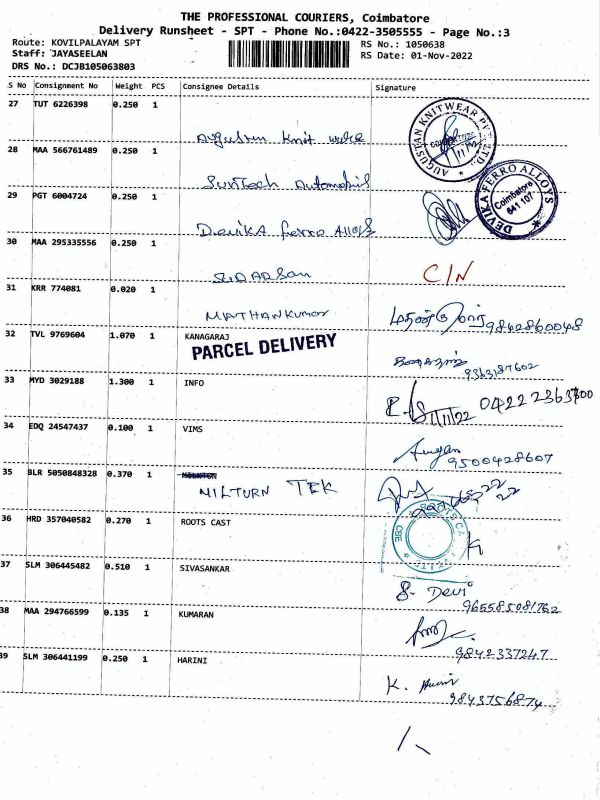 THE PROFESSIONAL COURIERS, Coimbatore
Delivery Runsheet - SPT - Phone No.:0422-3505555 - Page No.:3
Route: KOVILPALAYAM SPT
RS No.: 1050638
Staff: JAYASEELAN
RS Date: 01-Nov-2022
DRS No.: DCJB105063803
S No Consignment No Weight PCS Consignee Details Signature
27 TUT 6226398 0.250 1
Augusten Knit
AUGUSTAN KNITWEAR PVT. LTD.
28 MAA 566761489 0.250 1
SunTech Automobil
29 PGT 6004724 0.250 1
Devika ferro Alloys
DEVIKA FERRO ALLOYS
Coimbatore
641 107
30 MAA 295335556 0.250 1
C/N
31 KRR 774081 0.020 1
MATHANKUMAR
9842860048
32 TVL 9769604 1.070 1 KANAGARAJ
PARCEL DELIVERY
9363187602
33 MYD 3029188 1.300 1 INFO
1/11/22
34 EDQ 24547437 0.100 1 VIMS
9500428607
35 BLR 5050848328 0.370 1
MILTURN TEK
36 HRD 357040582 0.270 1 ROOTS CAST
CBE
37 SLM 306445482 0.510 1 SIVASANKAR
S. Devi
38 MAA 294766599 0.135 1 KUMARAN
9842337247
39 SLM 306441199 0.250 1 HARINI
K.
9843756874